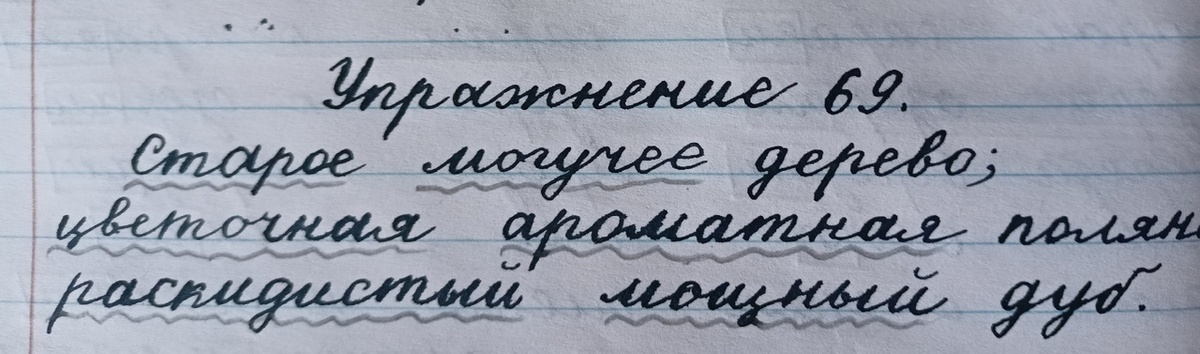 Упражнение 69.
Старое могучее дерево;
цветочная ароматная полян
раскидистый мощный дуб.